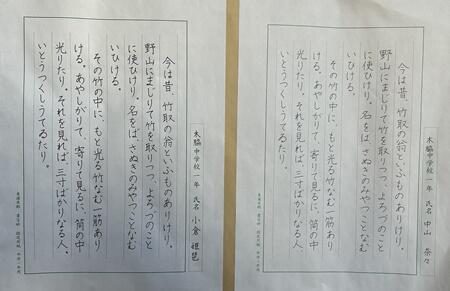 木脇中学校一年 氏名 中山 奈々
今は昔、竹取の翁といふものありけり。
野山にまじりて竹を取りつつ、よろづのこと
に使ひけり。名をばさぬきのみやつことなむ
いひける。
その竹の中に、もと光る竹なむ一筋あり
ける。あやしがりて、寄りて見るに、筒の中
光りたり。それを見れば、三寸ばかりなる人、
いとうつくしうてゐたり。
木脇中学校一年 氏名 小倉
今は昔、竹取の翁といふものありけり。
野山にまじりて竹を取りつつ、よろづのこと
に使ひけり。名をばさぬきのみやつことなむ
いひける。
その竹の中に、もと光る竹なむ一筋あり
ける。あやしがりて、寄りて見るに、筒の中
光りたり。それを見れば、三寸ばかりなる人、
いとうつくしうてゐたり。